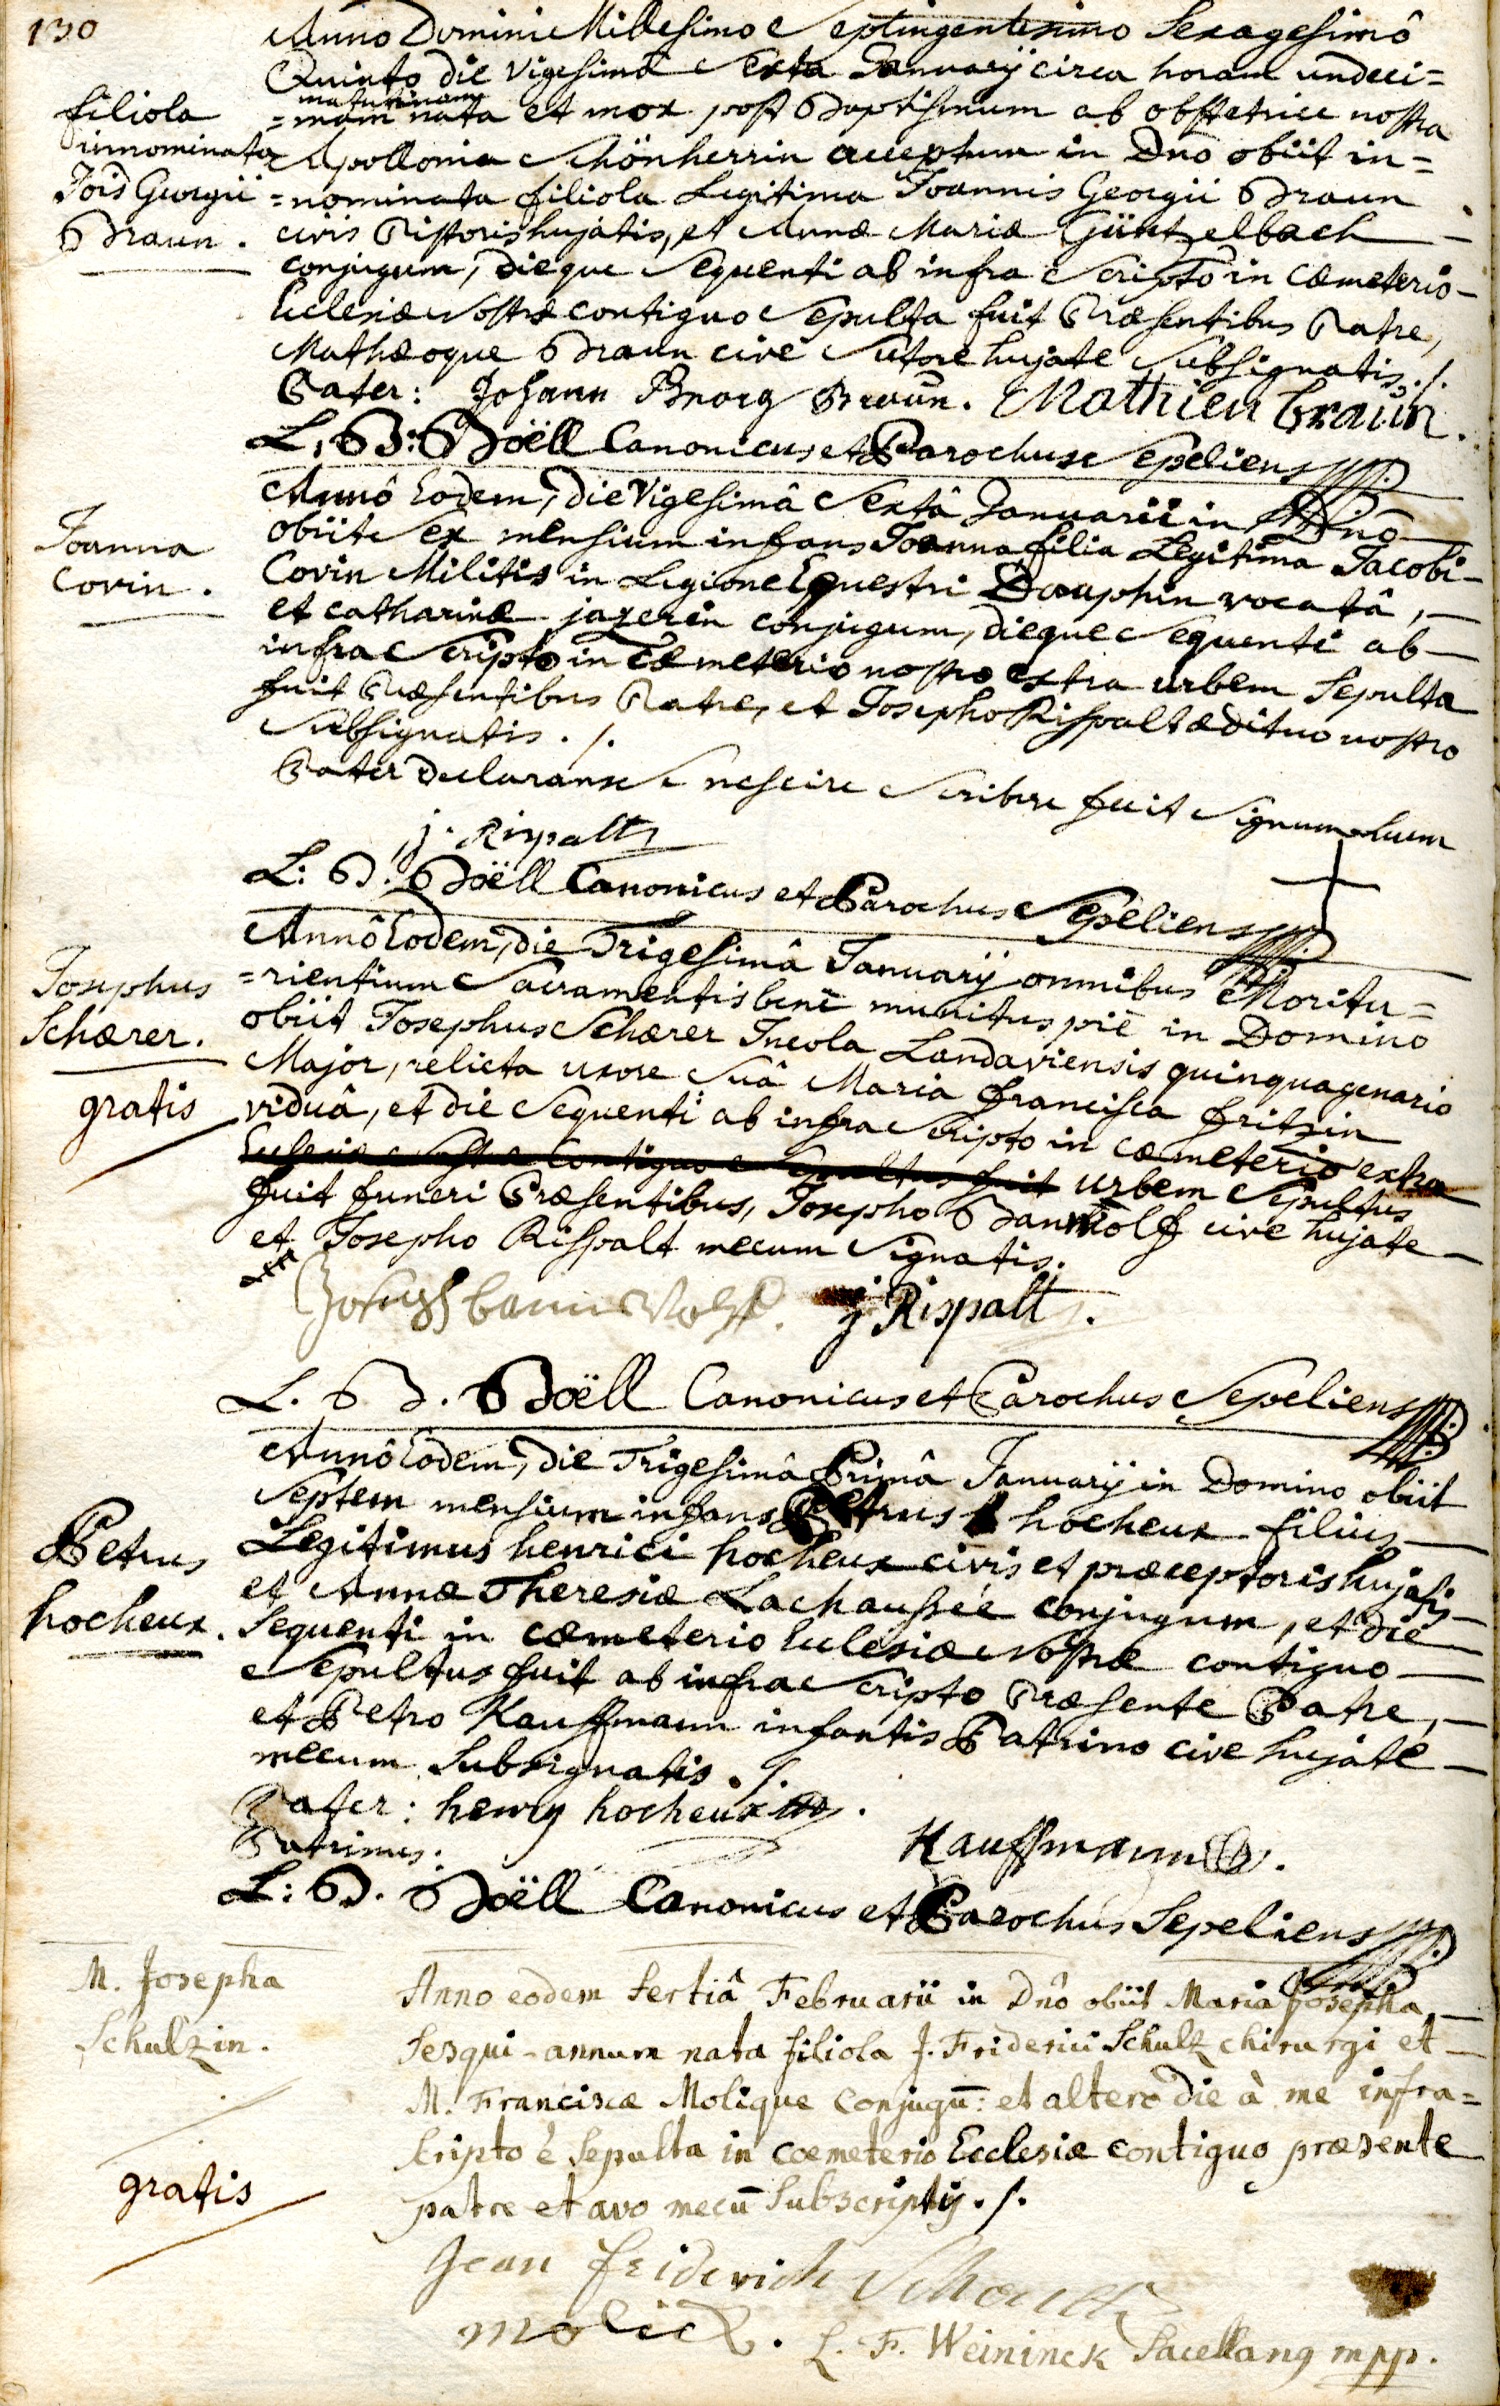 130
Anno Domini Millesimo Septingentesimo Sexagesimô
Quinto die vigesima Sexta Januarij circa horam undeci=
matutinam
=mam nata et mox post Baptismum ab obstetrice nostra
filiola
innominata
Jois Georgii
Braun.
Apollonia Schönherrin acceptum in Dno obiit in=
=nominata filiola Legitima Joannis Georgii Braun
civis Pistoris hujatis, et Annæ Mariæ Güntzelbach
conjugum, dieque Sequenti ab infra Scripto in Cœmeterio
Ecclesiæ Nostræ contiguo Sepulta fuit Præsentibus Patre,
Mathæoque Braun cive Sutore hujate Subsignatis ./.
Pater: Johann Georg Braun. Mathieu braun.
L. B: Boëll Canonicus et Parochus Sepeliens
Joanna
Covin.
Annô Eodem, die Vigesimâ Sextâ Januarii in Dno
obiit Sex mensium infans Joanna filia Legitima Jacobi
Covin Militis in Legione Equestri Dauphin vocatâ,
et catharinæ jazerin conjugum, dieque Sequenti ab
infra Scripto in Cœmeterio nostro extra urbem Sepulta
fuit Præsentibus Patre, et Josepho Rispalt ædituo nostro
Subsignatis ./.
Pater declarans Se nescire Scribere fecit Signum Suum
j. Rispalt
L: B. Boëll Canonicus et Parochus Sepeliens
Josephus
Schærer.
gratis
Annô Eodem, die Trigesimâ Januarij omnibus Moritu=
=rientium Sacramentis benè munitus piè in Domino
obiit Josephus Schærer Incola Landaviensis quinquagenario
Major, relicta uxore Suâ Maria Francisca Fritzin
viduâ, et die Sequenti ab infra Scripto in cœmeterio extra
Ecclesiæ Nostræ Contiguo Sepultus fuit urbem Sepultus
fuit funeri Præsentibus, Josepho Banwolf cive hujate
et Josepho Rispalt mecum Signatis.
j. Rispalt.
L. B. Boëll Canonicus et Parochus Sepeliens
Petrus
hocheux.
Annô Eodem, die Trigesimâ Primâ Januarij in Domino obiit
Septem mensium infans Petrus hocheux filius
Legitimus henrici hocheux civis et præceptoris hujatis
et Annæ Theresiæ Lachaussée conjugum, et die
Sequenti in cœmeterio Ecclesiæ Nostræ contiguo
Sepultus fuit ab infra Scripto Præsente Patre,
et Petro Kauffmann infantis Patrino cive hujate
mecum Subsignatis ./.
Pater: henry hocheux.
Patrinus:
Kauffmann.
L: B. Boëll Canonicus et Parochus Sepeliens
M. Josepha
Schulzin.
gratis
Anno eodem tertiâ Februarii in Dno obiit Maria Josepha
Sesqui-annum nata filiola J. Friderici Schulz chirurgi et
M. Franciscæ Molique Conjugū: et altero die à me infra=
scripto è Sepulta in cœmeterio Ecclesiæ contiguo præsente
patre et avo mecū Subscriptij ./.
Jean friderich Schoultz
molick.
L. F. Weininck Sacellang mpp.